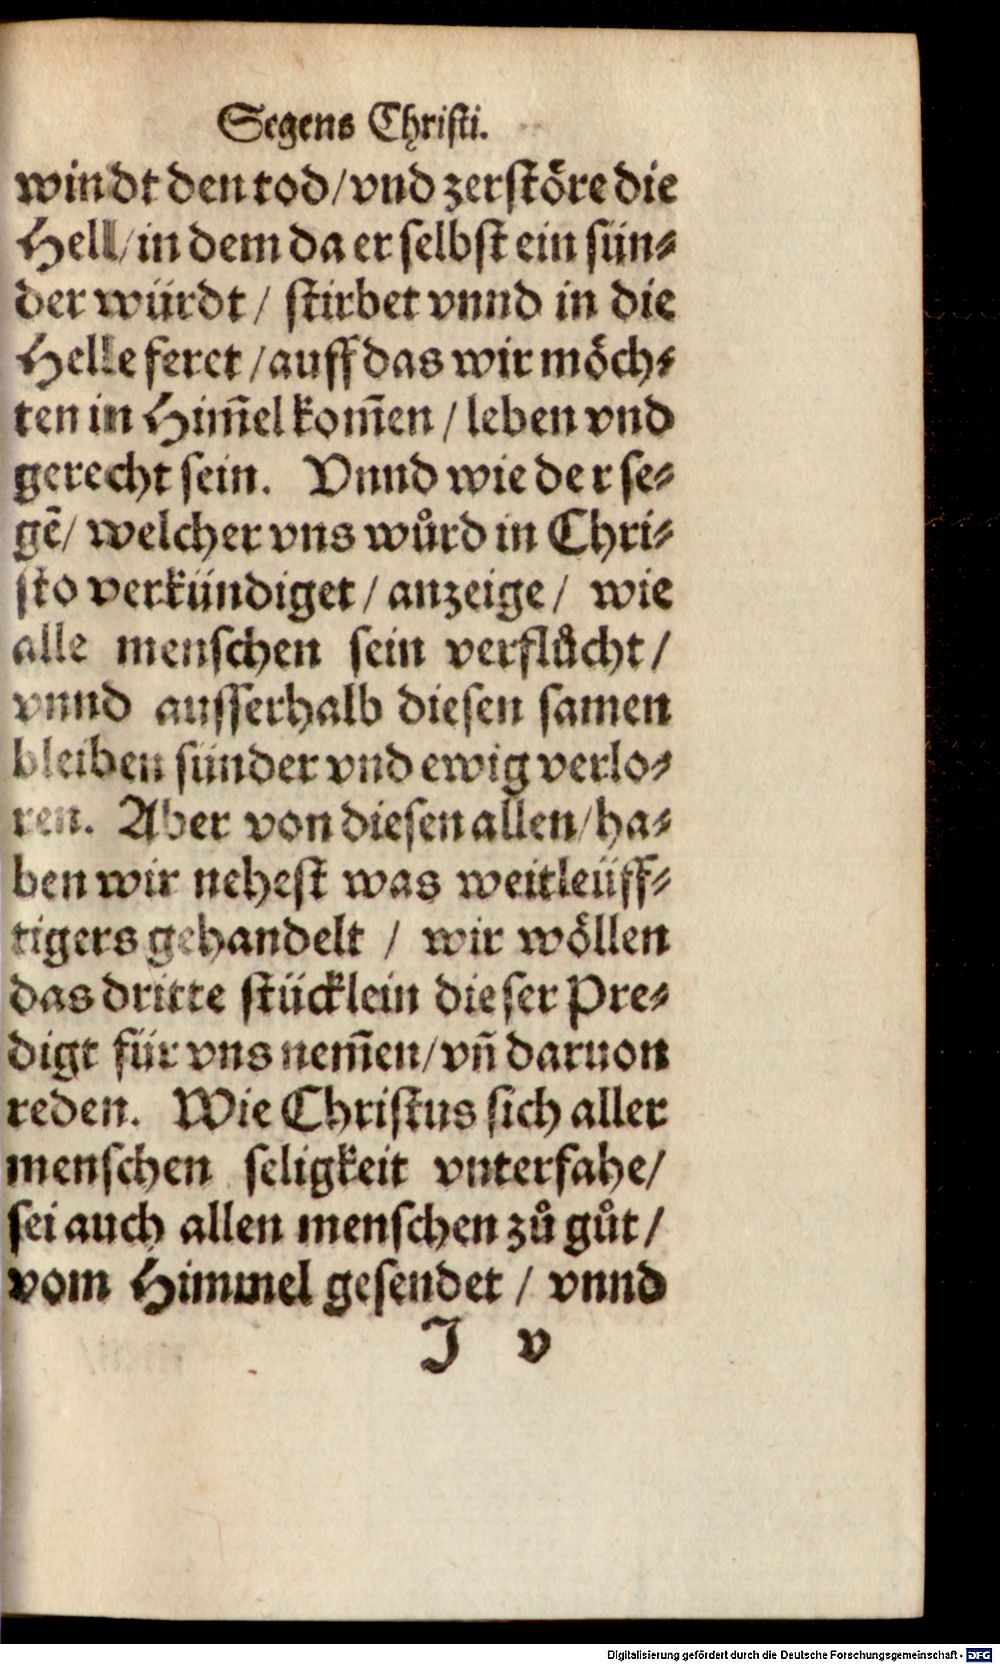 Segens Christi.
windt den tod/ vnd zerstöre die
Hell/ in dem da er selbst ein sün⸗
der würdt / stirbet vnnd in die
Helle feret / auff das wir möch⸗
ten in Him̃el kom̃en / leben vnd
gerecht sein. Vnnd wie der se⸗
gẽ/ welcher vns wůrd in Chri⸗
sto verkündiget / anzeige / wie
alle menschen sein verflůcht /
vnnd ausserhalb diesen samen
bleiben sünder vnd ewig verlo⸗
ren. Aber von diesen allen/ ha⸗
ben wir nehest was weitleüff⸗
tigers gehandelt / wir wöllen
das dritte stücklein dieser Pre⸗
digt für vns nem̃en/ vñ daruon
reden. Wie Christus sich aller
menschen seligkeit vnterfahe/
sei auch allen menschen zů gůt /
vom Himmel gesendet / vnnd
J v
Digitalisierung gefördert durch die Deutsche Forschungsgemeinschaft - DFG